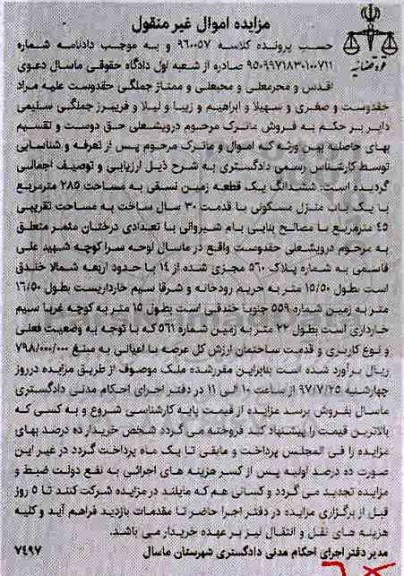 مزایده اموال غیر منقول
حسب پرونده کلاسه ۹۶۰۰۵۷ و به موجب دادنامه شماره
۹۵۰۹۹۷۱۸۳۰۱۰۰۷۱۱ صادره از شعبه اول دادگاه حقوقی ماسال دعوی
اقدس و محرمعلی و محبعلی و ممتاز جملگی حقدوست علیه مراد
حقدوست و صغری و سهیلا و ابراهیم و زیبا و لیلا و فریبرز جملگی سلیمی
دایر بر حکم به فروش ماترک مرحوم درویشعلی حق دوست و تقسیم
بهای حاصله بین ورثه که اموال و ماترک مرحوم پس از تعرفه و شناسایی
توسط کارشناس رسمی دادگستری به شرح ذیل ارزیابی و توصیف اجمالی
گردیده است: ششدانگ یک قطعه زمین نسقی به مساحت ۲۸۵ مترمربع
با یک باب منزل مسکونی با قدمت ۳۰ سال ساخت به مساحت تقریبی
۴۵ مترمربع با مصالح بنایی بام شیروانی با تعدادی درختان مثمر متعلق
به مرحوم درویشعلی حقدوست واقع در ماسال لوحه سرا کوچه شهید علی
قاسمی به شماره پلاک ۵۶۰ مجزی شده از ۱۴ با حدود اربعه شمالا خندق
است بطول ۱۵/۵۰ متر به حریم رودخانه و شرقا سیم خارداریست بطول ۱۶/۵۰
متر به زمین شماره ۵۵۹ جنوبا خندقی است بطول ۱۵ متر به کوچه غربا سیم
خارداری است بطول ۲۲ متر به زمین شماره ۵۶۱ که با توجه به وضعیت فعلی
و نوع کاربری و قدمت ساختمان ارزش کل عرصه با اعیانی به مبلغ ۷۹۸/۰۰۰/۰۰۰
ریال برآورد شده است بنابراین مقرر شده ملک موصوف از طریق مزایده در روز
چهارشنبه ۹۷/۷/۲۵ از ساعت ۱۰ الی ۱۱ در دفتر اجرای احکام مدنی دادگستری
ماسال بفروش برسد مزایده از قیمت پایه کارشناسی شروع و به کسی که
بالاترین قیمت را پیشنهاد کند فروخته می گردد شخص خریدار ده درصد بهای
مزایده را فی المجلس پرداخت و مابقی تا یک ماه پرداخت گردد در غیر این
صورت ده درصد اولیه پس از کسر هزینه های اجرائی به نفع دولت ضبط و
مزایده تجدید می گردد و کسانی هم که مایلند در مزایده شرکت کنند تا ۵ روز
قبل از برگزاری مزایده در دفتر اجرا حاضر تا مقدمات بازدید فراهم آید و کلیه
هزینه های نقل و انتقال نیز بر عهده خریدار می باشد.
مدیر دفتر اجرای احکام مدنی دادگستری شهرستان ماسال ۷۴۹۷